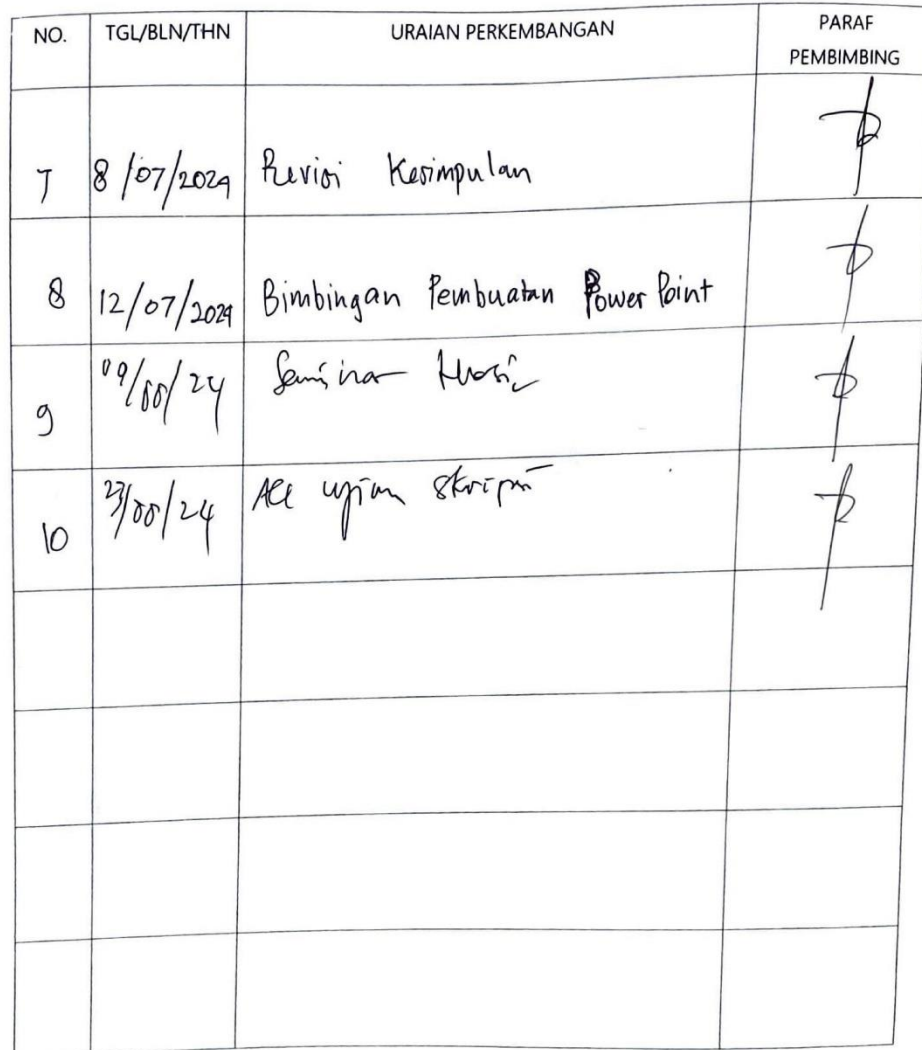 NO. TGL/BLN/THN URAIAN PERKEMBANGAN PARAF
PEMBIMBING
7 8/07/2024 Revisi Kesimpulan
8 12/07/2024 Bimbingan Pembuatan Power Point
9 09/08/24 Seminar Hasil
10 23/08/24 Acc ujian skripsi